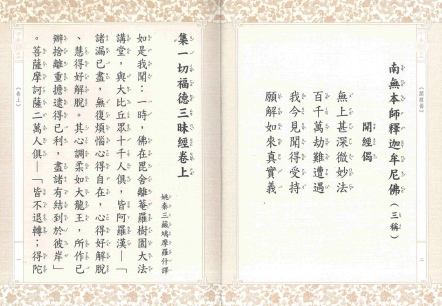 南無本師釋迦牟尼佛（三稱）
開經偈
無上甚深微妙法
百千萬劫難遭遇
我今見聞得受持
願解如來真實義
集一切福德三昧經卷上
姚秦三藏鳩摩羅什譯
如是我聞：一時，佛在毘舍離菴羅樹園大法
講堂，與大比丘眾十千人俱，皆阿羅漢—「
諸漏已盡，無復煩惱心得自在，心得好解脫
、慧得好解脫。其心調柔如大龍王，所作已
辦捨離重擔逮得己利，盡諸有結到於彼岸」
。菩薩摩訶薩二萬人俱—「皆不退轉；得陀
（卷上）
一